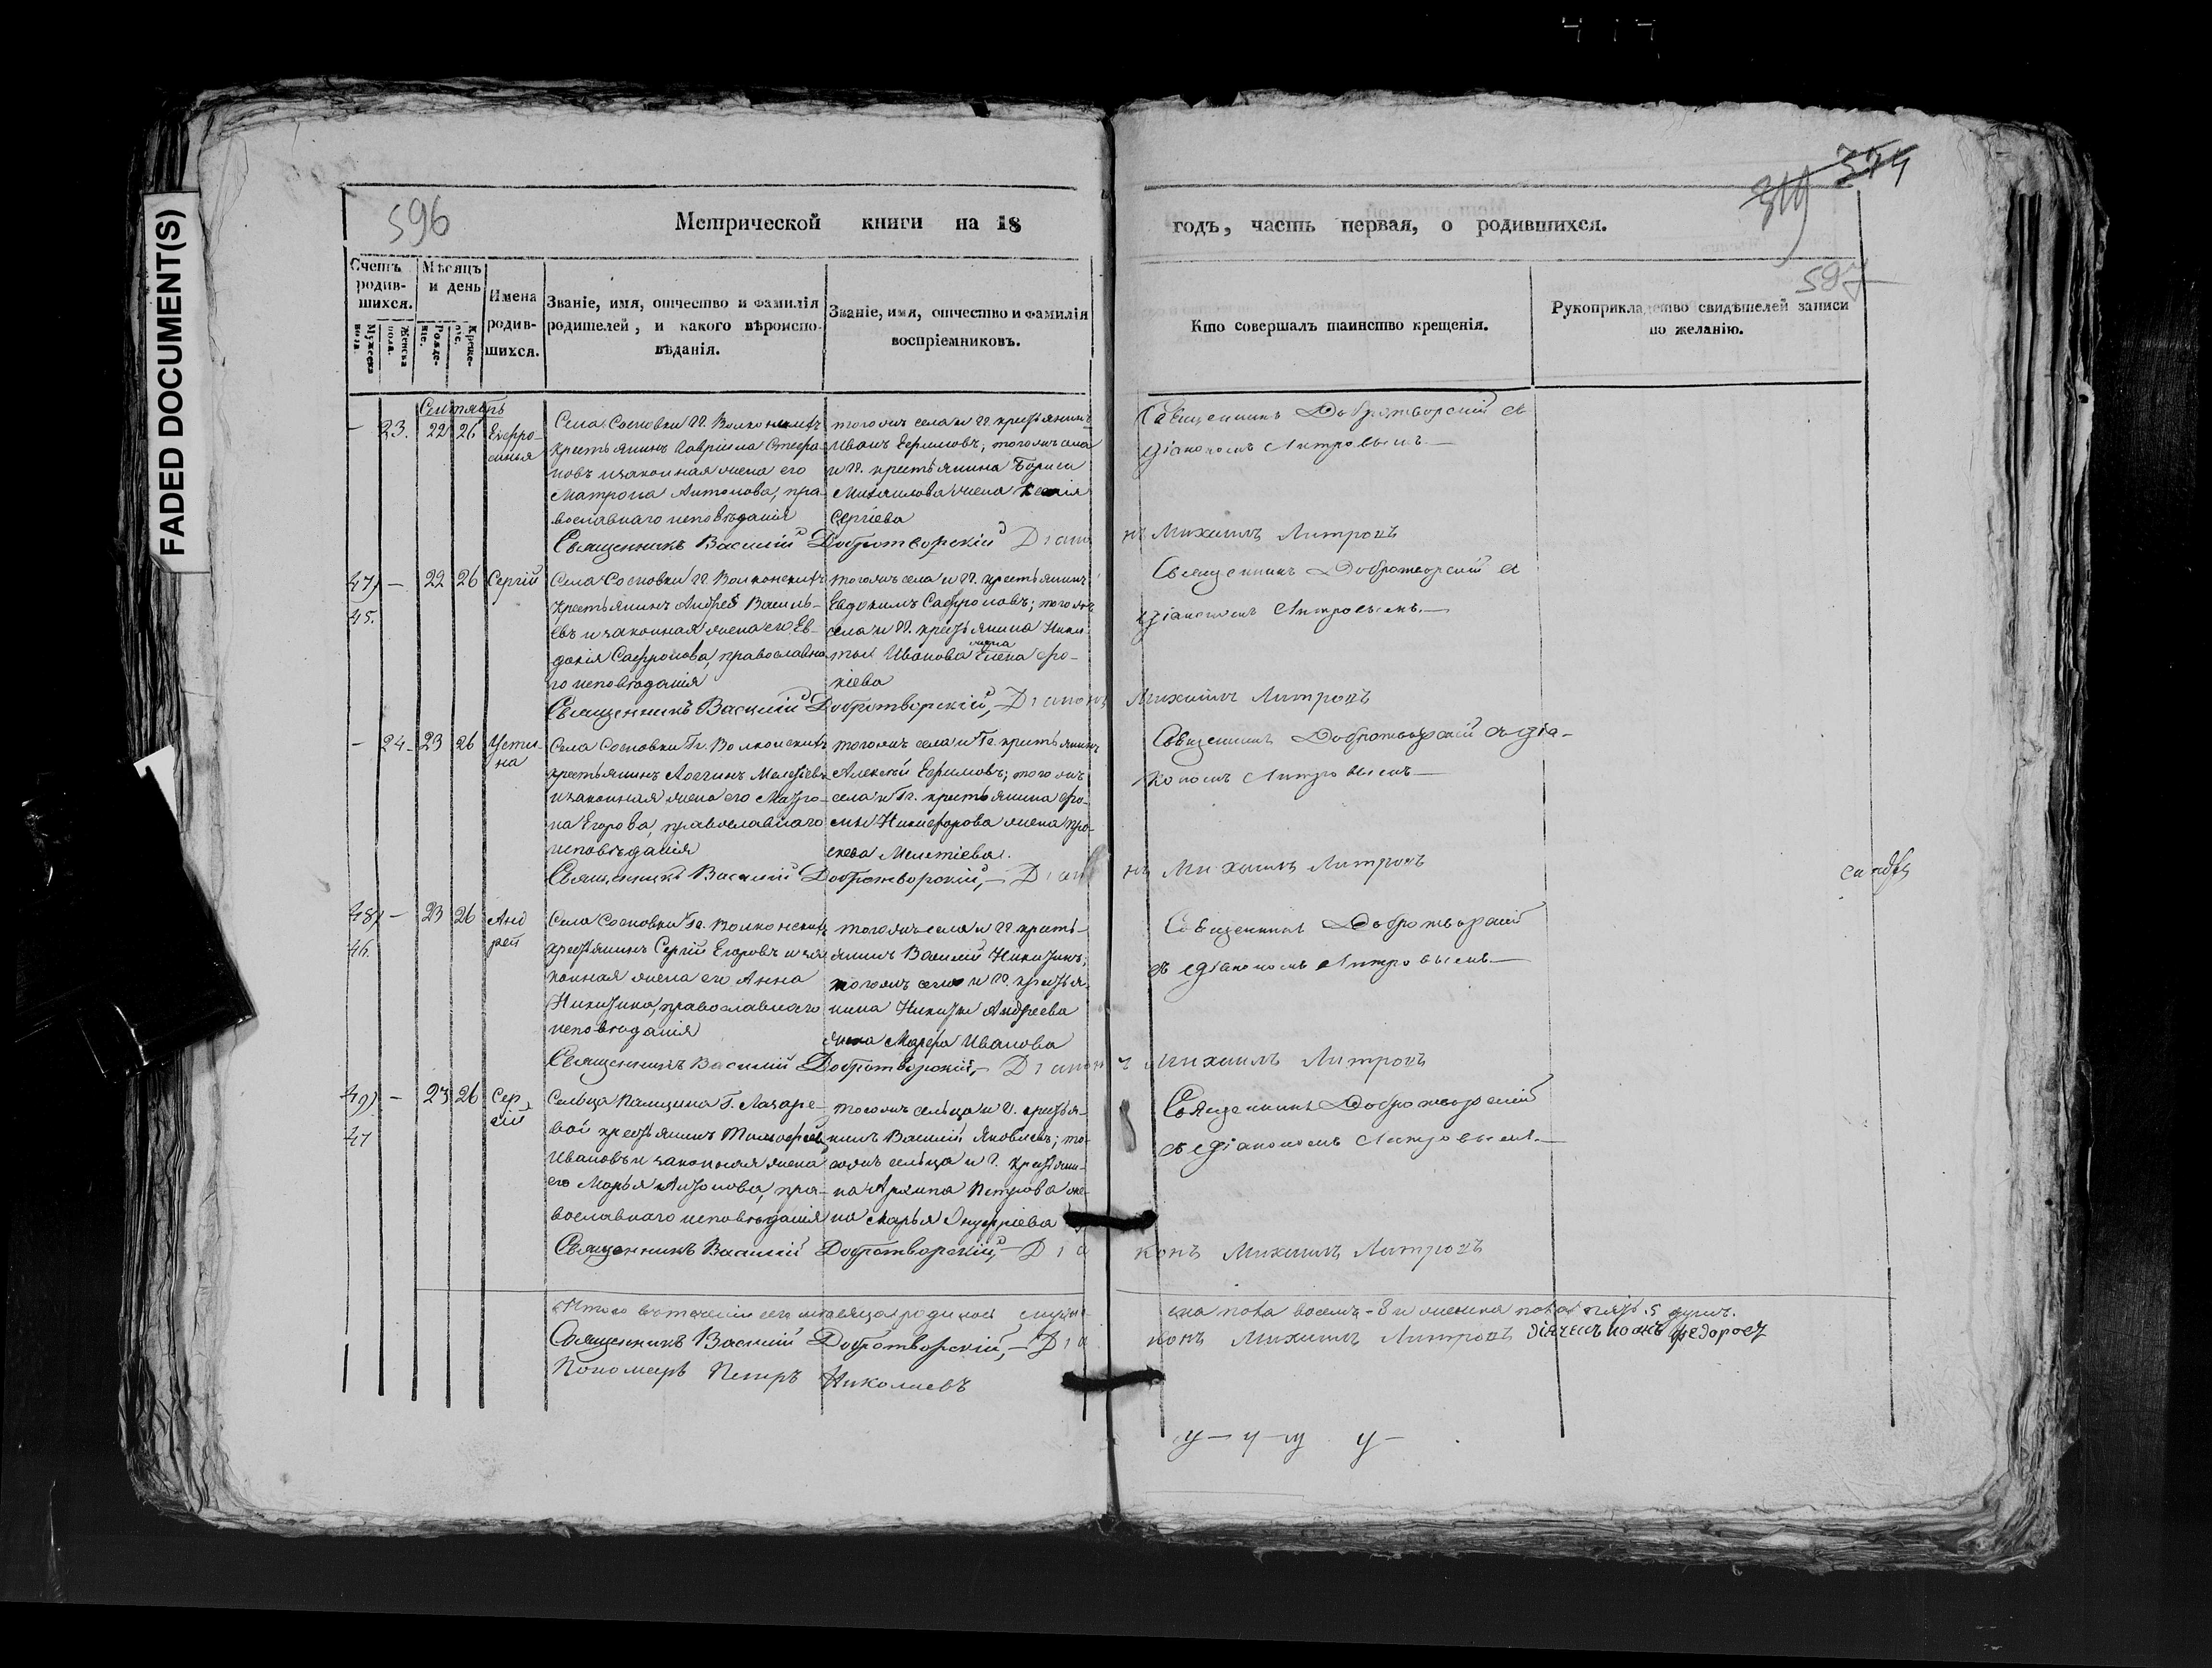 FADED DOCUMENT(S)
596
Метрической книги на 18
годъ, часть первая, о родившихся.
319 374
597
Счетъ родив-шихся.
Мужеска пола.
Женска пола.
Мѣсяцъ и день
Рожде-нія.
Креще-нія.
Имена родив-шихся.
Званіе, имя, отчество и фамилія родителей, и какого вѣроиспо-вѣданія.
Званіе, имя, отчество и фамилія воспріемниковъ.
Кто совершалъ таинство крещенія.
Рукоприкладство свидѣтелей записи по желанію.
Сентябрь
– 23. 22 26 Евфро-синья
Села Сосновки Гг. Волконскихъ
крестьянинъ Гавріила Стефа-
новъ и законная жена его
Матрона Антонова, пра-
вославнаго исповѣданія
тогожъ села и Гг. крестьянинъ
Иванъ Ефимовъ; тогожъ села
и Гг. крестьянина Бориса
Михаилова жена Ксенія
Сергіева
Священникъ Добротворскій съ
діакономъ Митровымъ.—
Священникъ Василій Добротворскій Діаконъ Михаилъ Митровъ
47) 45. – 22 26 Сергій
Села Сосновки Гг. Волконскихъ
крестьянинъ Андрей Василь-
евъ и законная жена его Ев-
докія Сафронова, православна-
го исповѣданія
тогожъ села и Гг. крестьянинъ
Евдокимъ Сафроновъ; тогожъ
села и Гг. крестьянина Ники-
ты Иванова жена Елена Про-
кіева
Священникъ Добротворскій съ
діакономъ Митровымъ.—
Священникъ Василій Добротворскій,— Діаконъ Михаилъ Митровъ
– 24. 23 26 Усти-на
Села Сосновки Гг. Волконскихъ
крестьянинъ Логгинъ Мелетіевъ
и законная жена его Матро-
на Егорова, православнаго
исповѣданія
тогожъ села и Гг. крестьянинъ
Алексѣй Ефимовъ; тогожъ
села и Гг. крестьянина Фо-
мы Никифорова жена Пра-
сковья Мелетіева.
Священникъ Добротворскій съ діа-
кономъ Митровымъ—
Священникъ Василій Добротворскій,— Діаконъ Михаилъ Митровъ
48) 46. – 23 26 Анд рей
Села Сосновки Гг. Волконскихъ
крестьянинъ Сергій Егоровъ и за-
конная жена его Анна
Никитина, православнаго
исповѣданія
тогожъ села и Гг. кресть-
янинъ Василій Никитинъ;
тогожъ села и Гг. крестья-
нина Никиты Андреева
жена Марфа Иванова
Священникъ Добротворскій
съ діакономъ Митровымъ—
Священникъ Василій Добротворскій,— Діаконъ Михаилъ Митровъ
49) 47 – 23 26 Сер гій
Сельца Панщина Г. Лазаре-
вой крестьянинъ Тимофей
Ивановъ и законная жена
его Марья Антонова, пра-
вославнаго исповѣданія
тогожъ сельца и Г. крестья-
нинъ Василій Яковлевъ; то-
гожъ сельца и Г. крестьяни-
на Архипа Петрова же-
на Марья Онуфріева
Священникъ Добротворскій
съ діакономъ Митровымъ.—
Священникъ Василій Добротворскій,— Діаконъ Михаилъ Митровъ
Итого въ теченіи сего мѣсяца родилось мужеска пола восемь - 8 и женска пола пять 5 душъ.
Священникъ Василій Добротворскій,— Діаконъ Михаилъ Митровъ Діячекъ Иоанъ Федоровъ
Пономарь Петръ Николаевъ